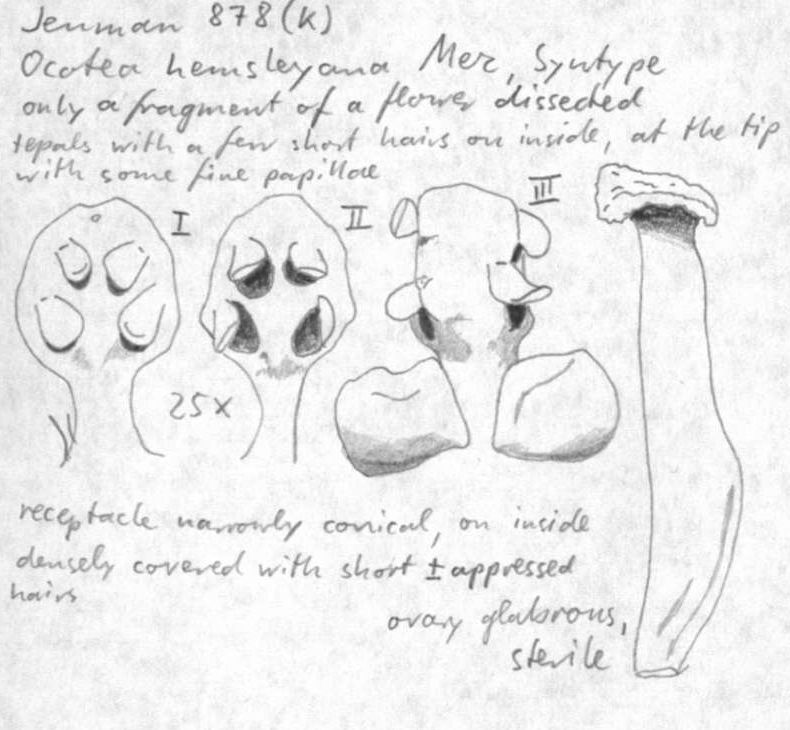 Jenman 878 (K)
Ocotea hemsleyana Mez, Syntype
only a fragment of a flower dissected
tepals with a few short hairs on inside, at the tip
with some fine papillae
I
II
III
25x
receptacle narrowly conical, on inside
densely covered with short ± appressed
hairs
ovary glabrous,
sterile